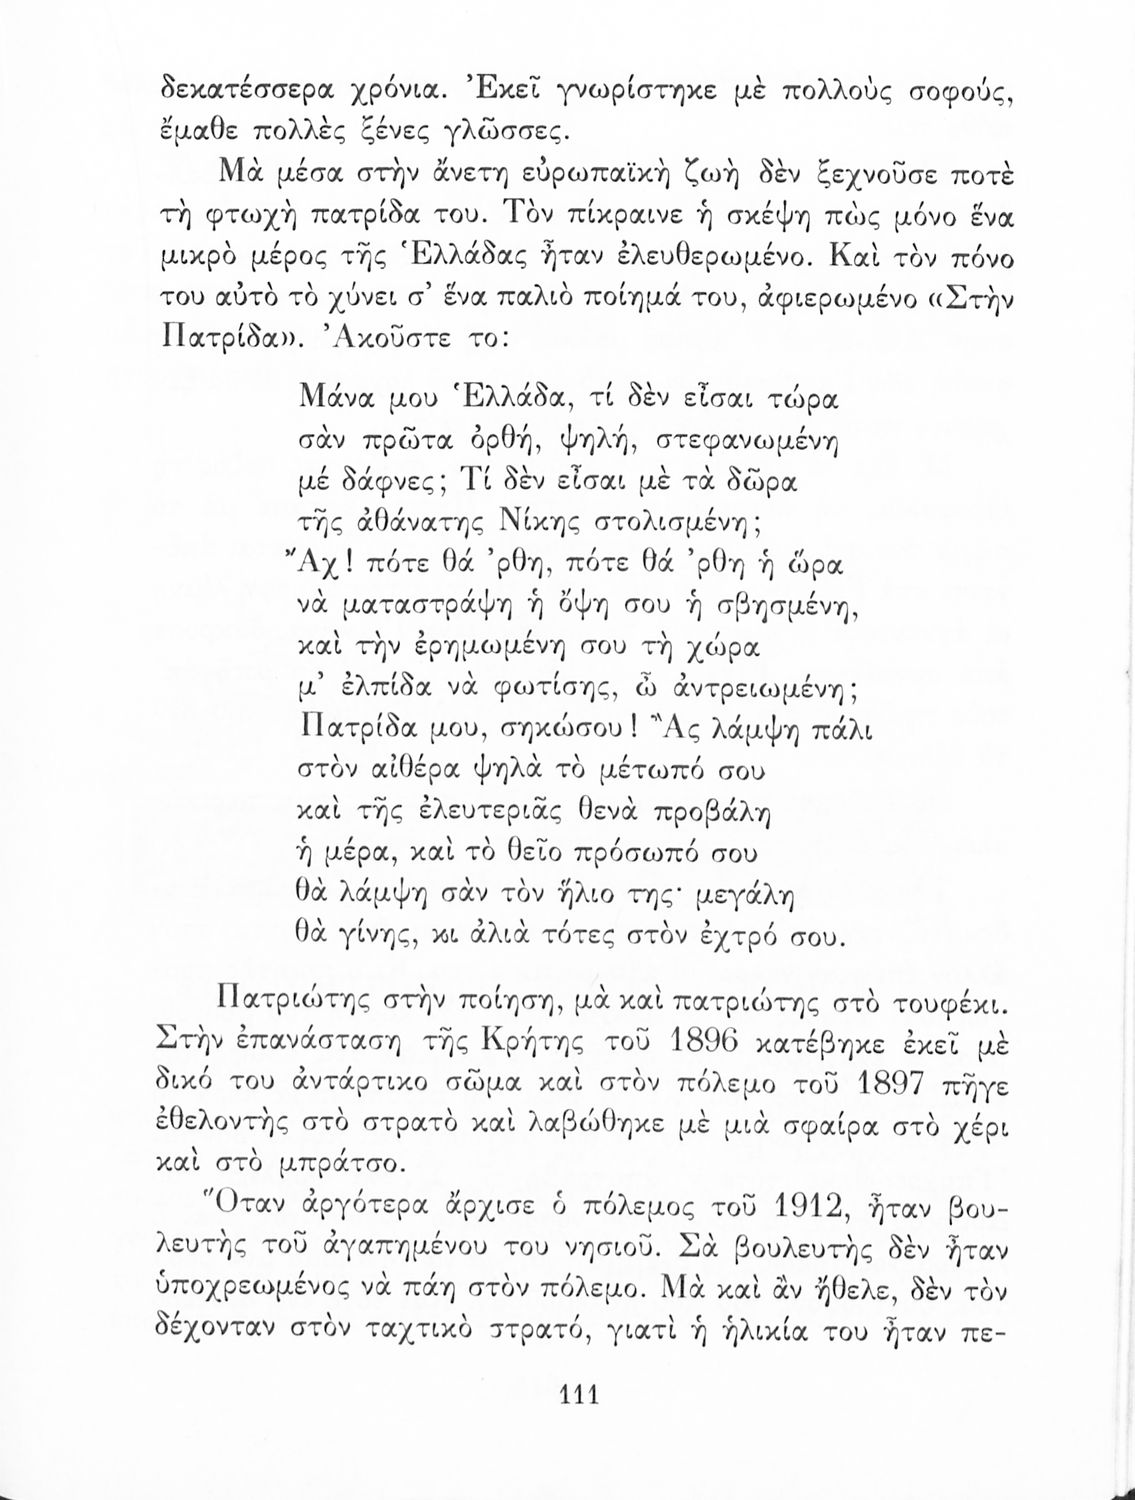 δεκατέσσερα χρόνια. Ἐκεῖ γνωρίστηκε μὲ πολλοὺς σοφούς,
ἔμαθε πολλὲς ξένες γλῶσσες.
Μὰ μέσα στὴν ἄνετη εὐρωπαϊκὴ ζωὴ δὲν ξεχνοῦσε ποτὲ
τὴ φτωχὴ πατρίδα του. Τὸν πίκραινε ἡ σκέψη πὼς μόνο ἕνα
μικρὸ μέρος τῆς Ἑλλάδας ἦταν ἐλευθερωμένο. Καὶ τὸν πόνο
του αὐτὸ τὸ χύνει σ' ἕνα παλιὸ ποίημά του, ἀφιερωμένο «Στὴν
Πατρίδα». Ἀκοῦστε το:
Μάνα μου Ἑλλάδα, τί δὲν εἶσαι τώρα
σὰν πρῶτα ὀρθή, ψηλή, στεφανωμένη
μέ δάφνες; Τί δὲν εἶσαι μὲ τὰ δῶρα
τῆς ἀθάνατης Νίκης στολισμένη;
Ἄχ! πότε θά 'ρθη, πότε θά 'ρθη ἡ ὥρα
νὰ ματαστράψη ἡ ὄψη σου ἡ σβησμένη,
καὶ τὴν ἐρημωμένη σου τὴ χώρα
μ' ἐλπίδα νὰ φωτίσης, ὦ ἀντρειωμένη;
Πατρίδα μου, σηκώσου! Ἂς λάμψη πάλι
στὸν αἰθέρα ψηλὰ τὸ μέτωπό σου
καὶ τῆς ἐλευτεριᾶς θενὰ προβάλη
ἡ μέρα, καὶ τὸ θεῖο πρόσωπό σου
θὰ λάμψη σὰν τὸν ἥλιο της· μεγάλη
θὰ γίνης, κι ἀλιὰ τότες στὸν ἐχτρό σου.
Πατριώτης στὴν ποίηση, μὰ καὶ πατριώτης στὸ τουφέκι.
Στὴν ἐπανάσταση τῆς Κρήτης τοῦ 1896 κατέβηκε ἐκεῖ μὲ
δικό του ἀντάρτικο σῶμα καὶ στὸν πόλεμο τοῦ 1897 πῆγε
ἐθελοντὴς στὸ στρατὸ καὶ λαβώθηκε μὲ μιὰ σφαίρα στὸ χέρι
καὶ στὸ μπράτσο.
Ὅταν ἀργότερα ἄρχισε ὁ πόλεμος τοῦ 1912, ἦταν βου-
λευτὴς τοῦ ἀγαπημένου του νησιοῦ. Σὰ βουλευτὴς δὲν ἦταν
ὑποχρεωμένος νὰ πάη στὸν πόλεμο. Μὰ καὶ ἂν ἤθελε, δὲν τὸν
δέχονταν στὸν ταχτικὸ στρατό, γιατὶ ἡ ἡλικία του ἦταν πε-
111